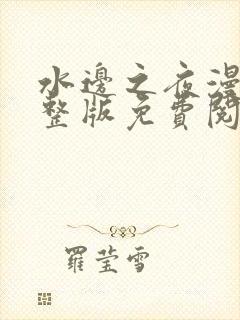 水邊之夜漫
整版免費閱
羅瑩雪